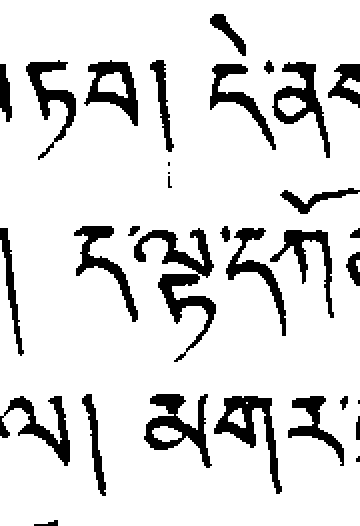 ཏབ། དེ་ན
། ད་ལྟ་དཀོ
ལ། མགར་